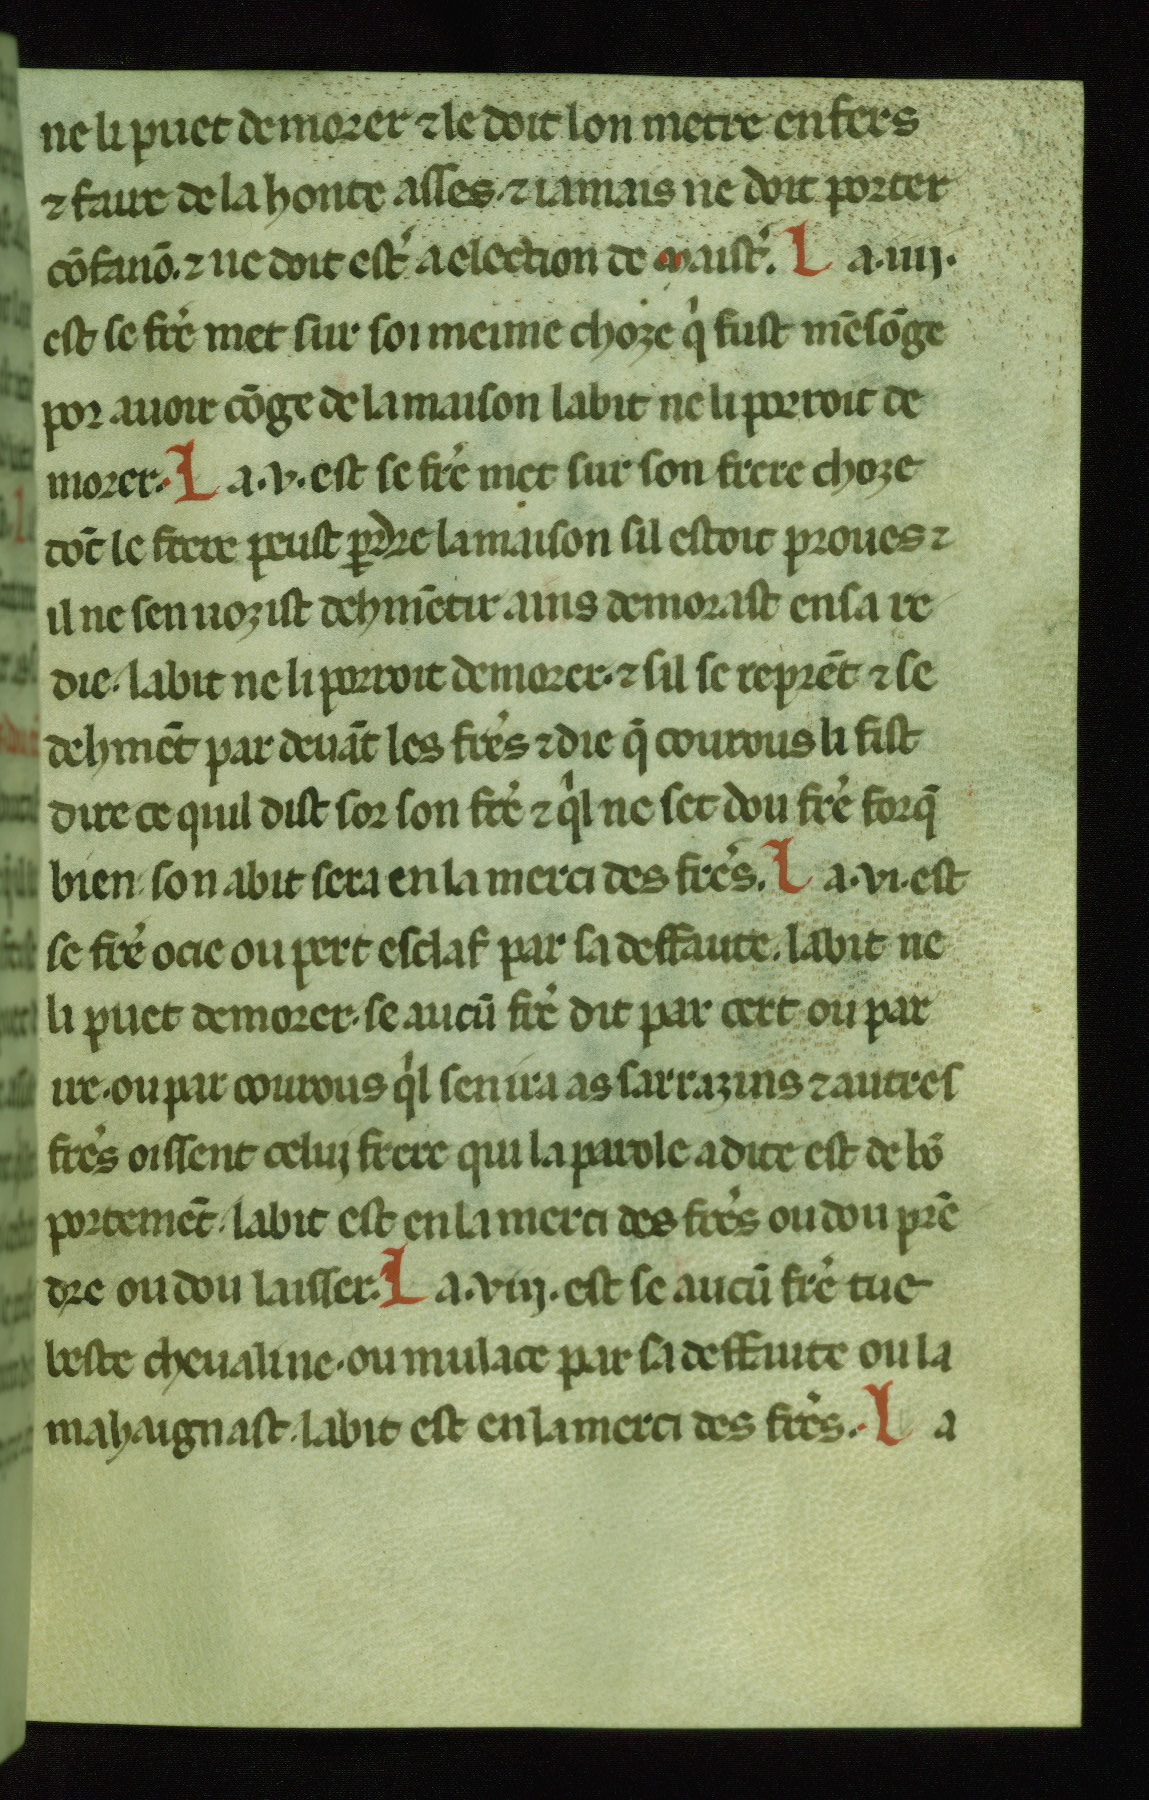 ne li puet demorer ⁊ le doit lon metre en fers
⁊ faire de la honte asses · ⁊ iamais ne doit porter
cōfanō · ⁊ ne doit estͬ a election de maistͬ. L a · iiij ·
est se frē met sur soi meime choze qͥ fust mēsōge
por auoir cōge de la maison labit ne li porroit de
morer · L a · v · est se frē met sur son frere choze
dōt le frere peust ꝑdre la maison sil estoit proues ⁊
il ne sen uozist dehmētir ains demorast en sa re
die · labit ne li porroit demorer · ⁊ sil se reprēt ⁊ se
dehmēt par deuāt les frēs ⁊ die q̄ courous li fist
dire ce quil dist sor son frē ⁊ qͥl ne set dou frē forq̄
bien son abit sera en la merci des frēs. L a · vi · est
se frē ocie ou pert esclaf par sa deffaute · labit ne
li puet demorer · se aucū frē dit par cert ou par
ire · ou par courous qͥl sen ira as sarrazins ⁊ autres
frēs oissent celuj frere qui la parole a dite est de bō
portemēt · labit est en la merci des frēs ou dou prē
dre ou dou laisser. L a · viij · est se aucū frē tue
beste cheualine · ou mulace par sa deffaute ou la
mahaignast · labit est en la merci des frēs · L a